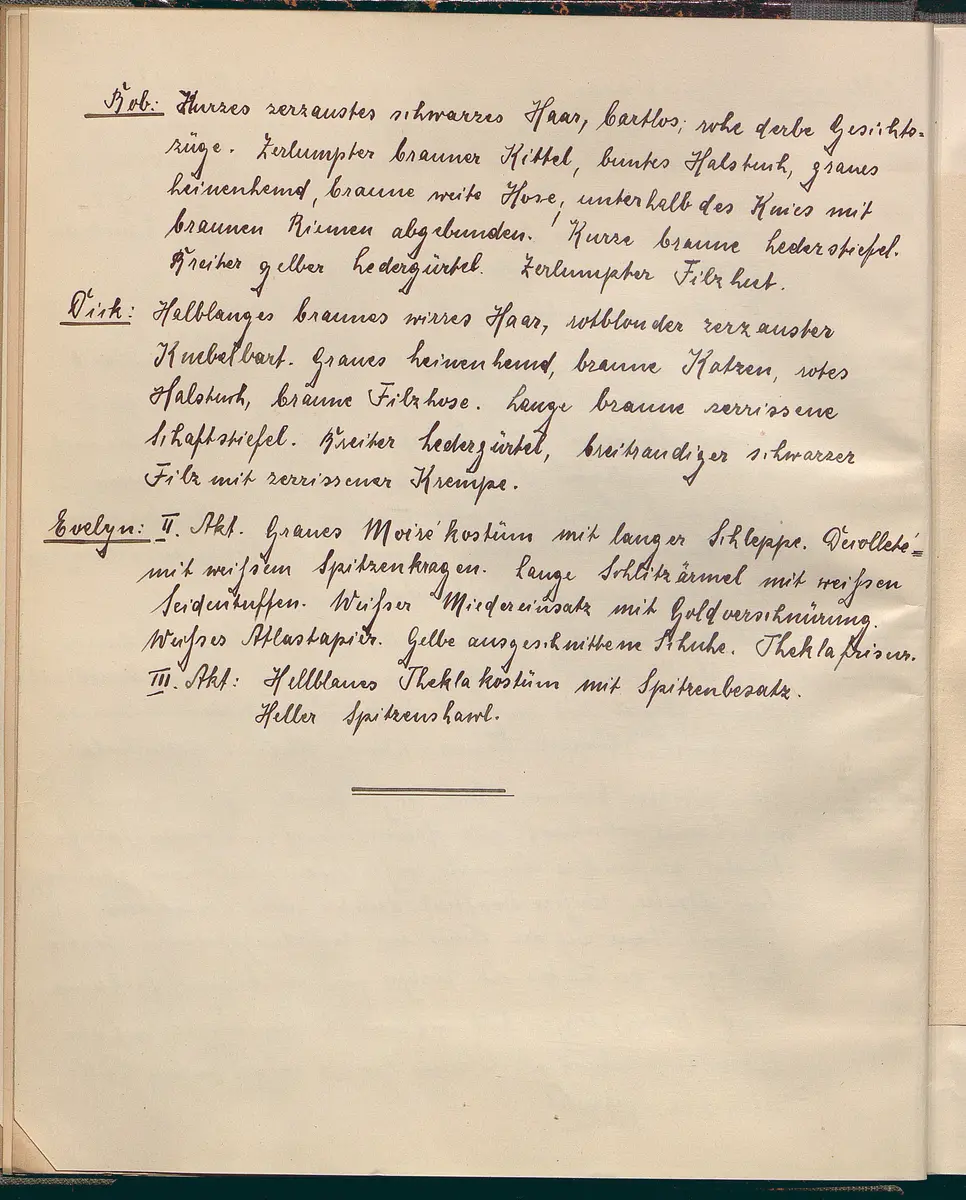 Bob: Kurzes zerzaustes schwarzes Haar, bartlos; rohe derbe Gesichts-
züge. Zerlumpter brauner Kittel, buntes Halstuch, graues
Leinenhemd, braune weite Hose, unterhalb des Knies mit
braunen Riemen abgebunden. Kurze braune Lederstiefel.
Breiter gelber Ledergürtel. Zerlumpter Filzhut.
Dick: Halblanges braunes wirres Haar, rotblonder zerzauster
Knebelbart. Graues Leinenhemd, braune Kotzen, rotes
Halstuch, braune Filzhose. Lange braune zerrissene
Schaftstiefel. Breiter Ledergürtel, breitrandiger schwarzer
Filz mit zerrissener Krempe.
Evelyn: II. Akt. Graues Moirékostüm mit langer Schleppe. Decolleté=
mit weißem Spitzenkragen. Lange Schlitzärmel mit weißen
Seidentuffen. Weißer Miedereinsatz mit Goldverschnürung.
Weißes Atlastapier. Gelbe ausgeschnittene Schuhe. Theklafrisur.
III. Akt: Hellblaues Theklakostüm mit Spitzenbesatz.
Heller Spitzenshawl.